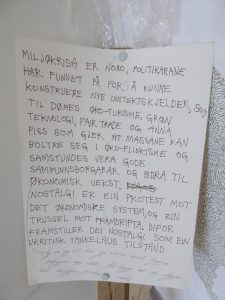 MILJØKRISA ER NOKO, POLITIKARANE
HAR FUNNET PÅ FOR Å KUNNE
KONSTRUERE NYE INNTEKTSKJELDER, SOM
TIL DØMES ØKO-TURISME, GRØN
TEKNOLOGI, FAIR TRADE OG ANNA
PISS SOM GJER AT MASSANE KAN
BOLTRE SEG I ØKO-FLINKISME OG
SAMSTUNDES VERA GODE
SAMFUNNSBORGARAR OG BIDRA TIL
ØKONOMISK VEKST.
NOSTALGI ER EIN PROTEST MOT
DET ØKONOMISKE SYSTEM, OG EIN
TRUSSEL MOT FRAMDRIFTA, DIFOR
FRAMSTILLER DEI NOSTALGI SOM EIN
UKRITISK TANKELAUS TILSTAND